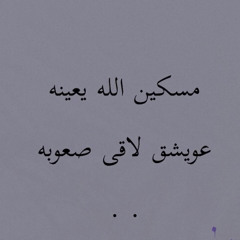 مسكين الله يعينه
عويشق لاقى صعوبه
. .